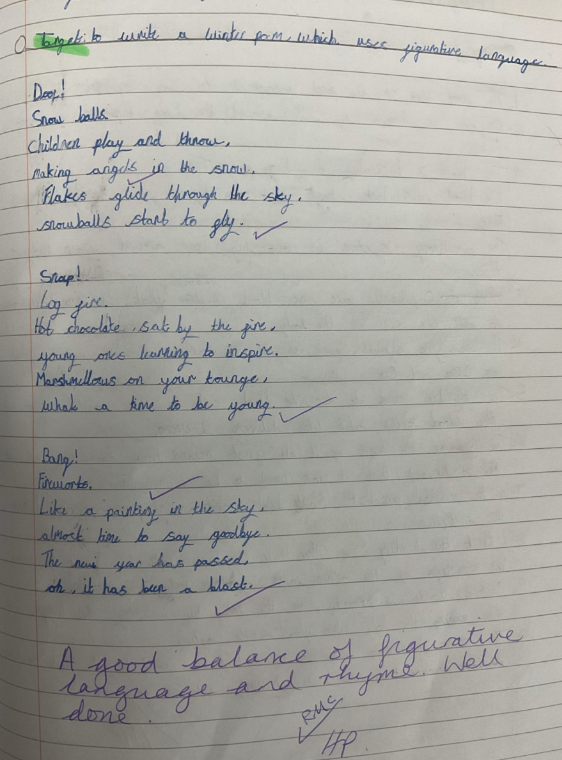 Target: to write a winter poem, which uses figurative language.
Doof!
Snow balls
Children play and throw,
making angels in the snow.
Flakes glide through the sky,
snowballs start to fly.
Snap!
Log fire.
Hot chocolate, sat by the fire,
young ones learning to inspire.
Marshmellows on your tounge,
what a time to be young.
Bang!
Fireworks.
Like a painting in the sky,
almost time to say goodbye.
The new year has passed,
oh, it has been a blast.
A good balance of figurative
language and rhyme. Well
done.
HP.